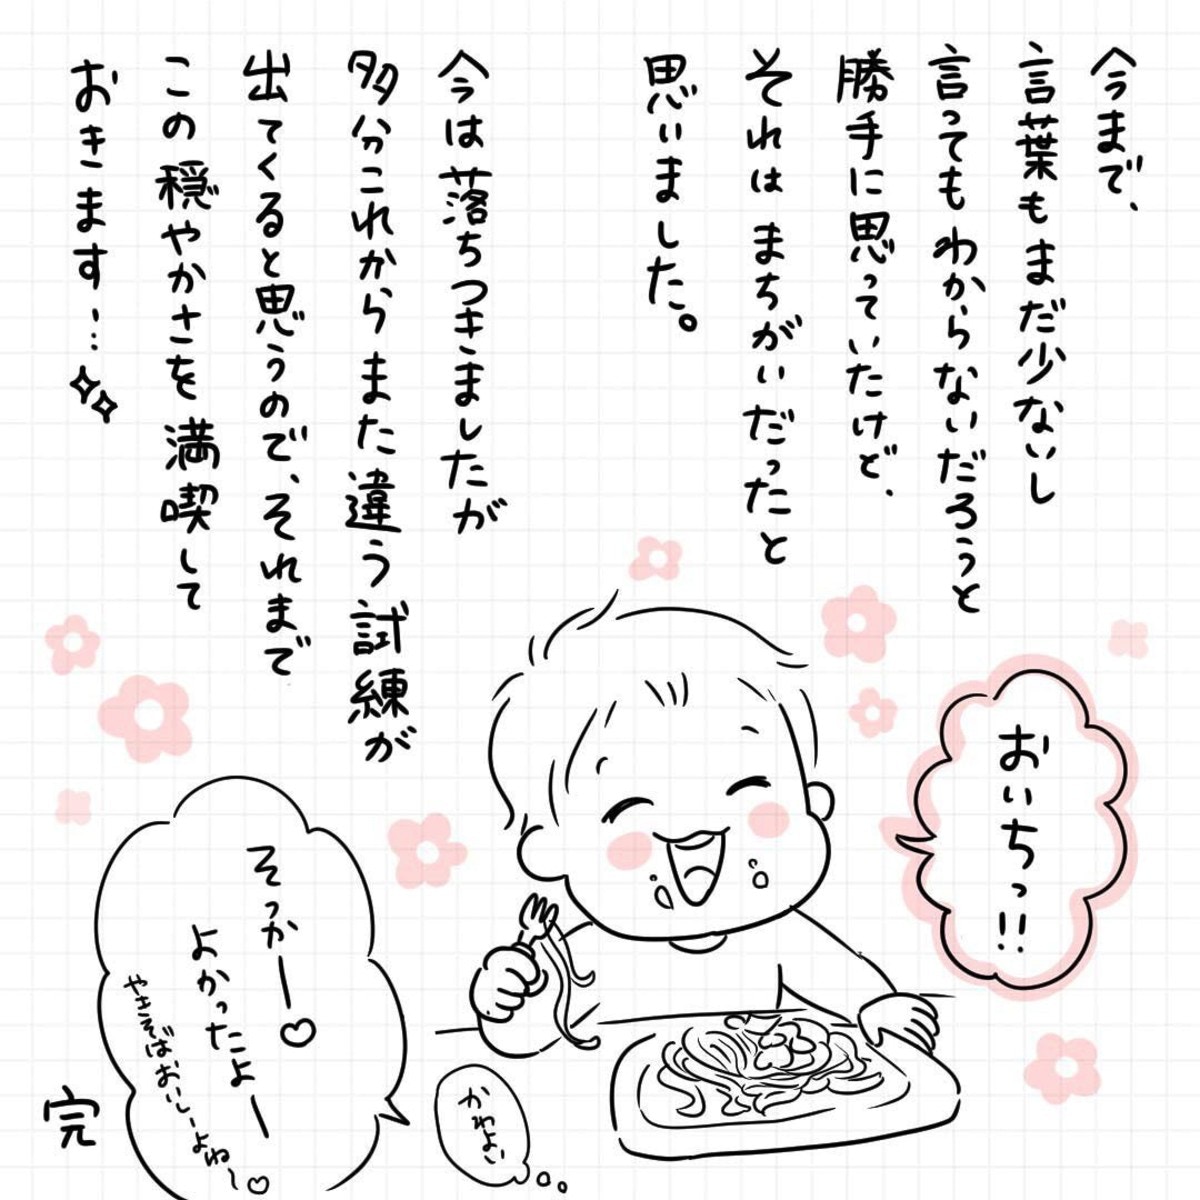 今まで、
言葉もまだ少ないし
言ってもわからないだろうと
勝手に思っていたけど、
それはまちがいだったと
思いました。
今は落ちつきましたが
多分これからまた違う試練が
出てくると思うので、それまで
この穏やかさを満喫して
おきます…
おいちっ!!
そっかー♡
よかったよー
やきそばおいしーよね〜♡
かわよい
完